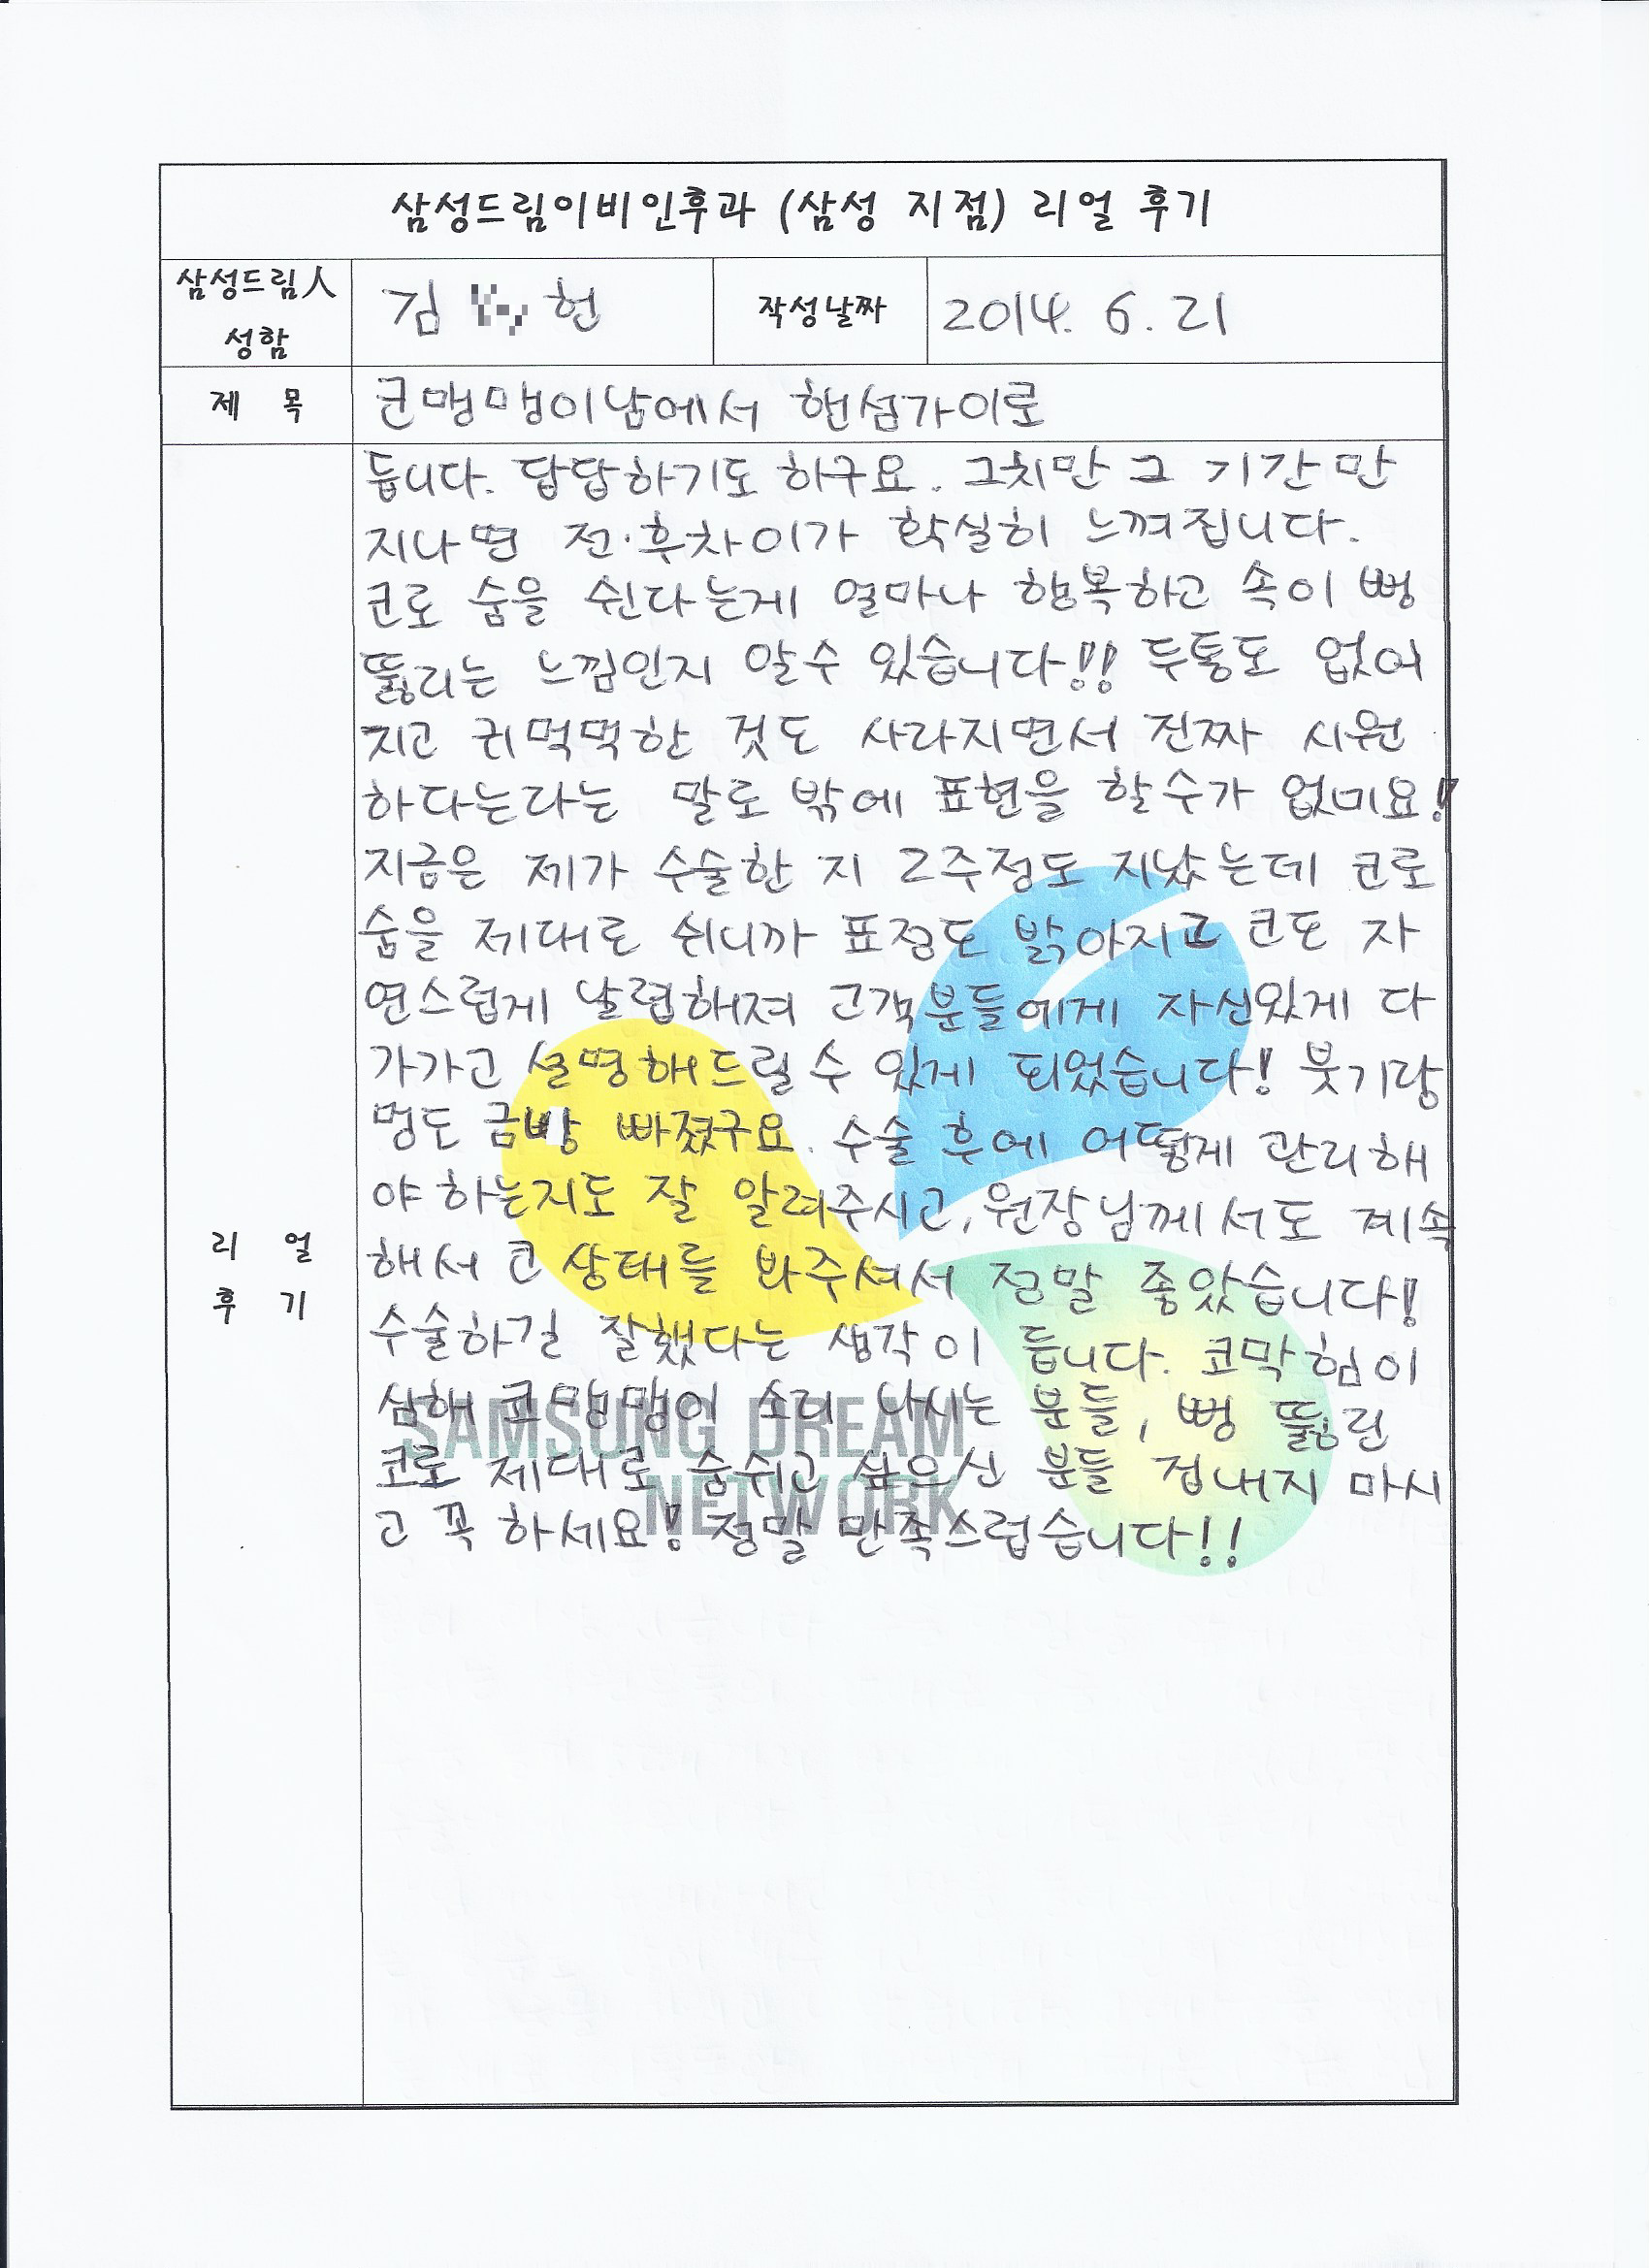 삼성드림이비인후과 (삼성 지점) 리얼 후기
삼성드림人
성함
김 헌
작성날짜
2014. 6. 21
제 목
코맹맹이남에서 핸섬가이로
리 얼
후 기
듭니다. 답답하기도 하구요. 그치만 그 기간만
지나면 전·후차이가 확실히 느껴집니다.
코로 숨을 쉰다는게 얼마나 행복하고 속이 뻥
뚫리는 느낌인지 알수 있습니다!! 두통도 없어
지고 귀먹먹한 것도 사라지면서 진짜 시원
하다는다는 말로 밖에 표현을 할수가 없네요!
지금은 제가 수술한 지 2주정도 지났는데 코로
숨을 제대로 쉬니까 표정도 밝아지고 코도 자
연스럽게 날렵해져 고객분들에게 자신있게 다
가가고 설명해드릴 수 있게 되었습니다! 붓기랑
멍도 금방 빠졌구요. 수술 후에 어떻게 관리해
야 하는지도 잘 알려주시고, 원장님께서도 계속
해서 코 상태를 봐주셔서 정말 좋았습니다!
수술하길 잘했다는 생각이 듭니다. 코막힘이
심해 코맹맹이 소리 나시는 분들, 뻥 뚫린
코로 제대로 숨쉬고 싶으신 분들 겁내지 마시
고 꼭 하세요! 정말 만족스럽습니다!!
SAMSUNG DREAM
NETWORK